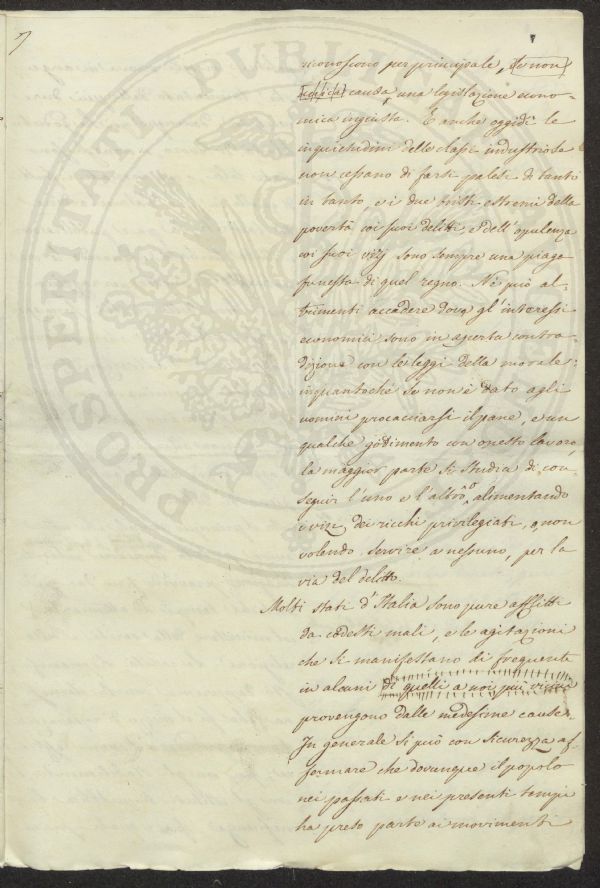 7
riconoscono per principale, se non
unica causa, una legislazione econo-
mica ingiusta. E anche oggidì le
inquietudini delle classi industriose
non cessano di farsi palesi di tanto
in tanto, e i due tristi estremi della
povertà coi suoi delitti, e dell'opulenza
coi suoi vizj sono sempre una piaga
funesta di quel regno. Nè può al-
trimenti accadere dove gl'interessi
economici sono in aperta contra-
dizione con le leggi della morale:
inquantochè se non è dato agli
uomini procacciarsi il pane, e un
qualche godimento con onesto lavoro,
la maggior parte si studia di con-
seguir l'uno e l'altro, o alimentando
i vizj dei ricchi privilegiati, o, non
volendo servire a nessuno, per la
via del delitto.
Molti stati d'Italia sono pure afflitti
da codesti mali, e le agitazioni
che si manifestano di frequente
in alcuni di quelli a noi più vicini
provengono dalle medesime cause.
In generale si può con sicurezza af-
fermare che dovunque il popolo
nei passati e nei presenti tempi
ha preso parte ai movimenti
PROSPERITATI PUBLICAE